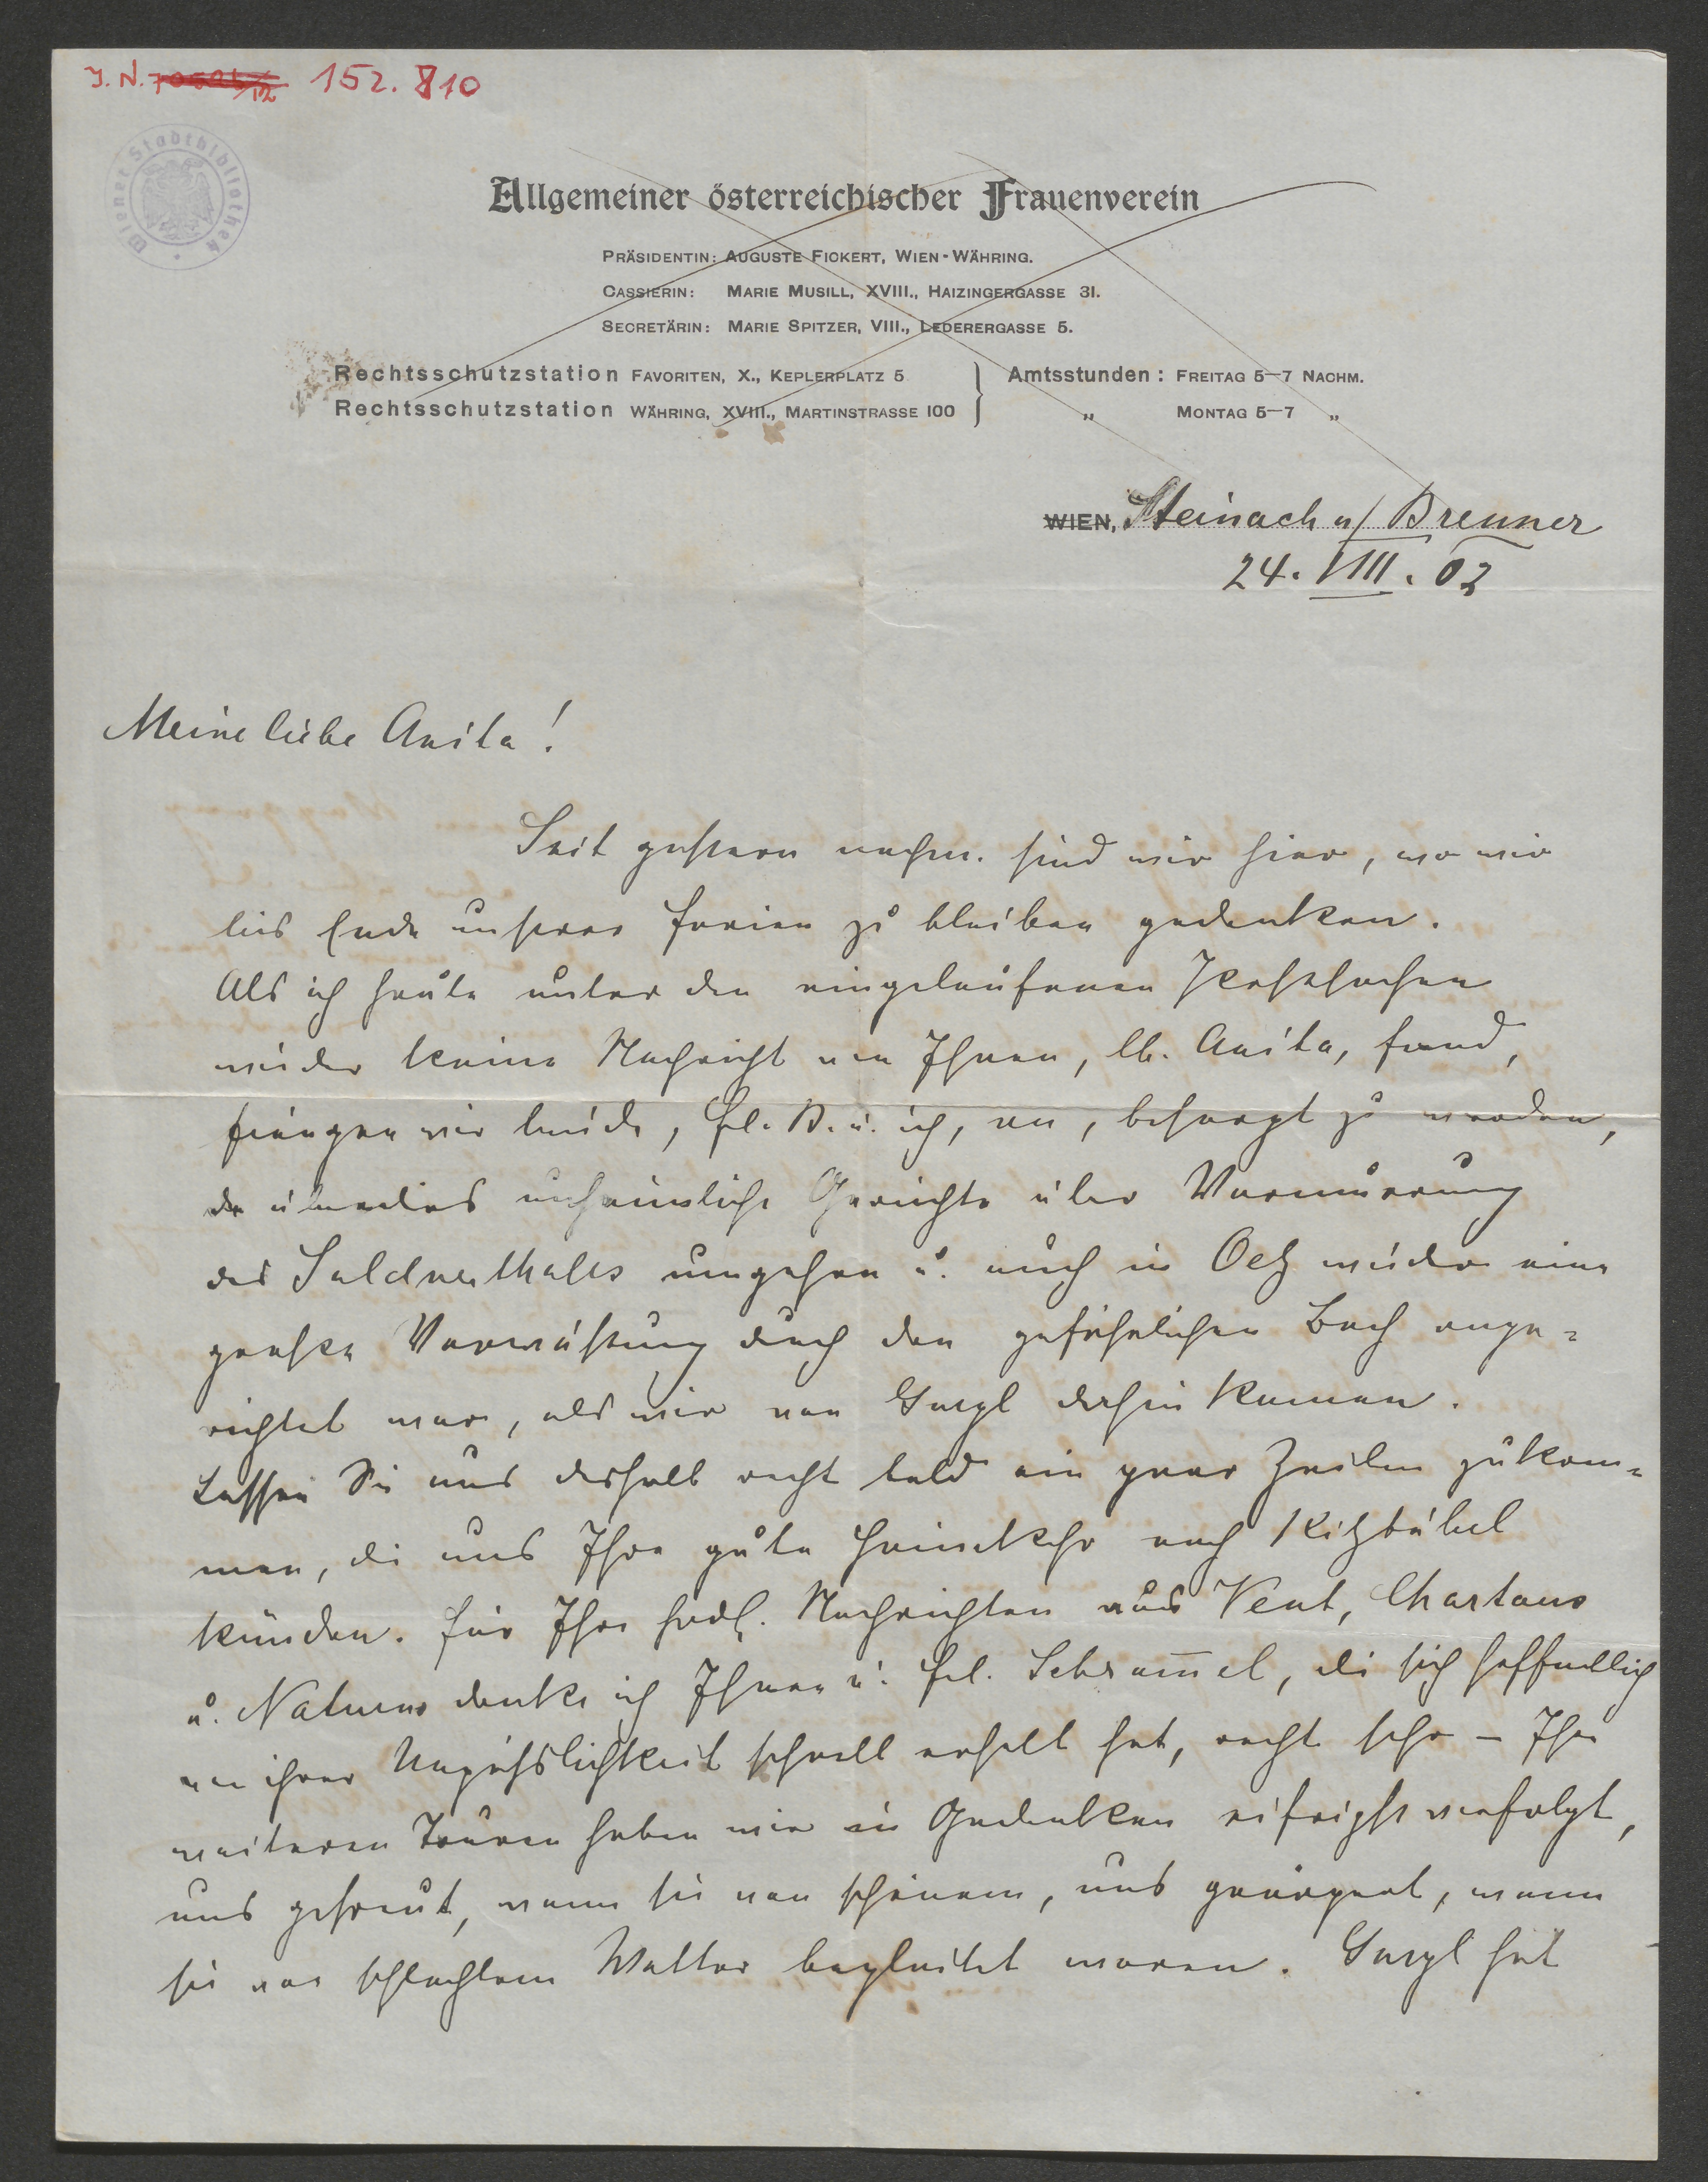 J. N. 152.810
Wiener Stadtbibliothek
Allgemeiner österreichischer Frauenverein
PRÄSIDENTIN: AUGUSTE FICKERT, WIEN-WÄHRING.
CASSIERIN: MARIE MUSILL, XVIII., HAIZINGERGASSE 31.
SECRETÄRIN: MARIE SPITZER, VIII., LEDERERGASSE 5.
Rechtsschutzstation FAVORITEN, X., KEPLERPLATZ 5 } Amtsstunden: FREITAG 5–7 NACHM.
Rechtsschutzstation WÄHRING, XVIII., MARTINSTRASSE 100 „ MONTAG 5–7 „
WIEN, Steinach a/ Brenner
24. VIII. 02
Meine liebe Anita!
Seit gestern nachm. sind wir hier, wo wir
bis Ende unserer Ferien zu bleiben gedenken.
Als ich heute unter den eingelaufenen Postsachen
wieder keine Nachricht von Ihnen, lb. Anita, fand,
fiengen wir beide, Frl. B. u. ich, an, besorgt zu werden,
da überdies unheimliche Gerüchte über Vermurrung
des Suldnerthales umgehen u. auch in Oetz wieder eine
große Verwüstung durch den gefährlichen Bach ange=
richtet war, als wir von Gurgl dahin kamen.
Lassen Sie uns deshalb recht bald ein paar Zeilen zukom=
men, die uns Ihre gute Heimkehr nach Kitzbühel
künden. Für Ihre frdl. Nachrichten aus Vent, Chartaus
u. Naturns danke ich Ihnen u. Frl. Schram̅el, die sich hoffendlich
von ihrer Unpässlichkeit schnell erholt hat, recht sehr – Ihre
weiteren Touren haben wir in Gedanken eifrigst verfolgt,
uns gefreut, wenn sie von schönem, uns geärgert, wenn
sie von schlechtem Wetter begleitet waren. Gurgl hat